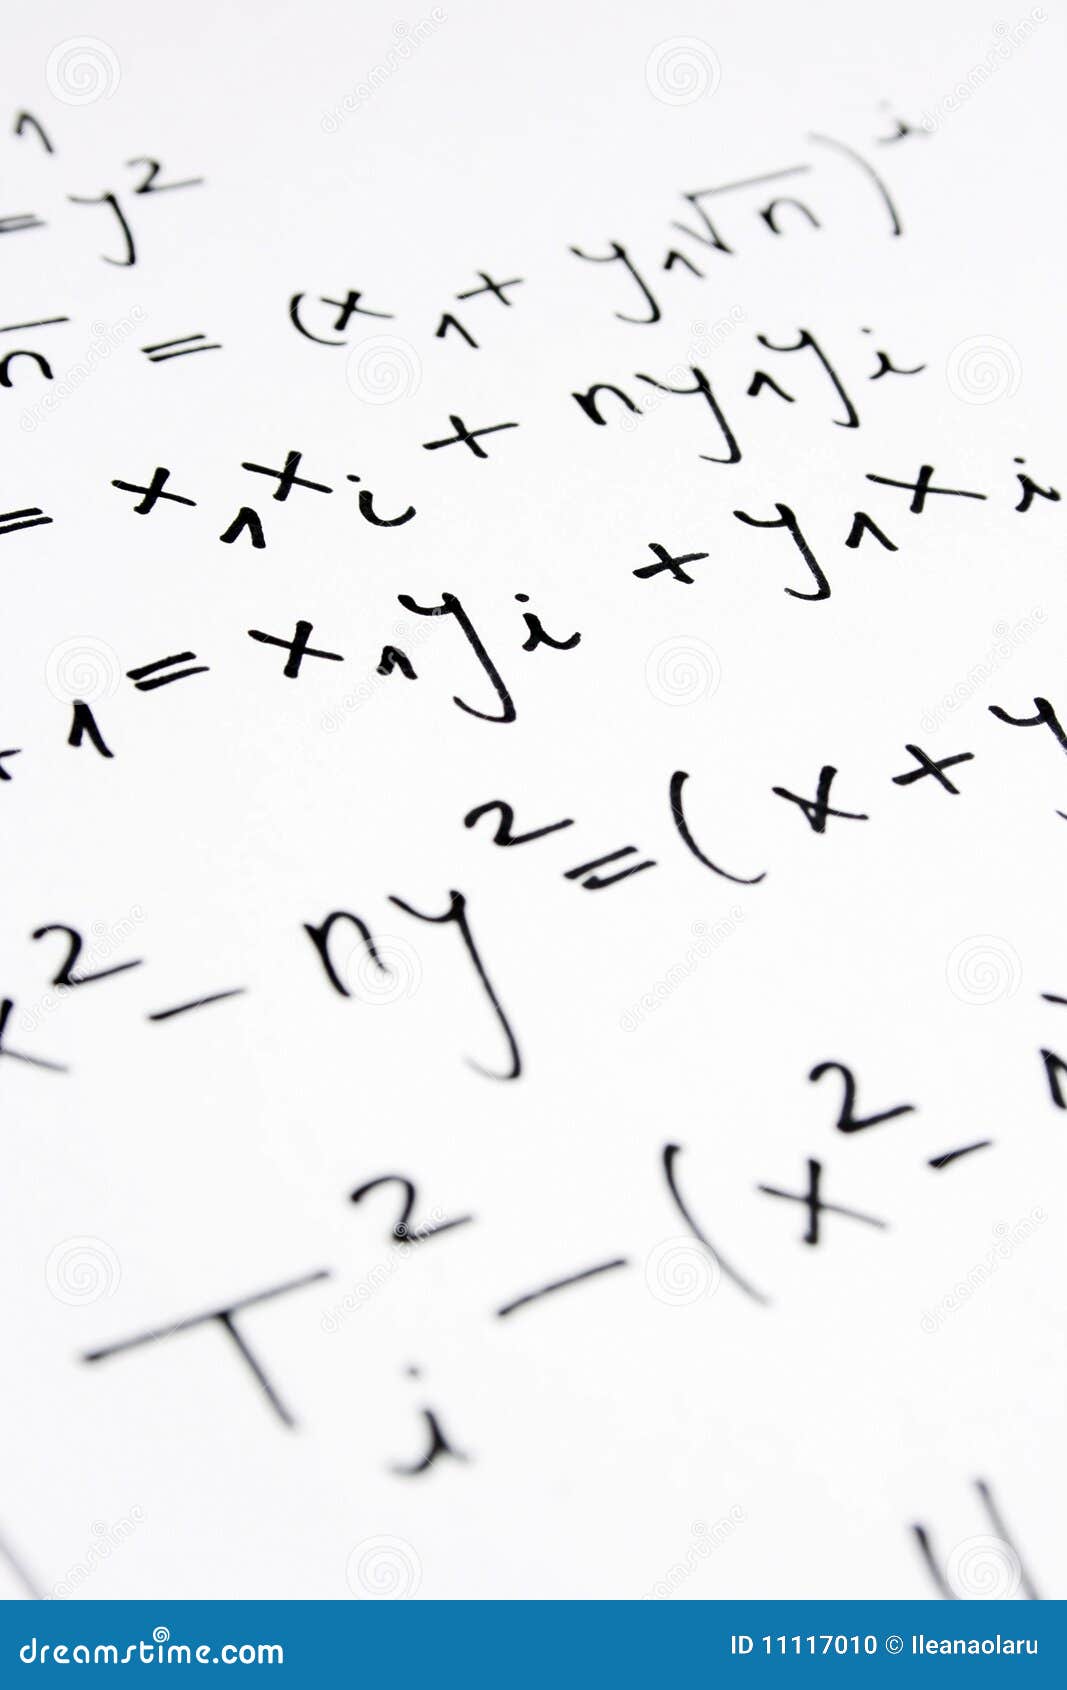 1
= y²
√n = (x₁ + y₁√n)ⁱ
= x₁xᵢ + ny₁yᵢ
₁ = x₁yᵢ + y₁xᵢ
x² - ny² = (x + y
Tᵢ² - (x² -
dreamstime.com
ID 11117010 © Ileanaolaru